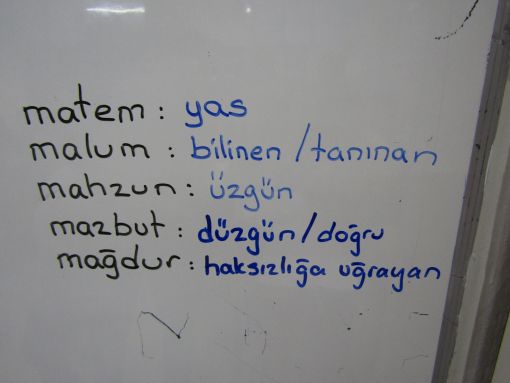 matem : yas
malum : bilinen / tanınan
mahzun : üzgün
mazbut : düzgün / doğru
mağdur : haksızlığa uğrayan